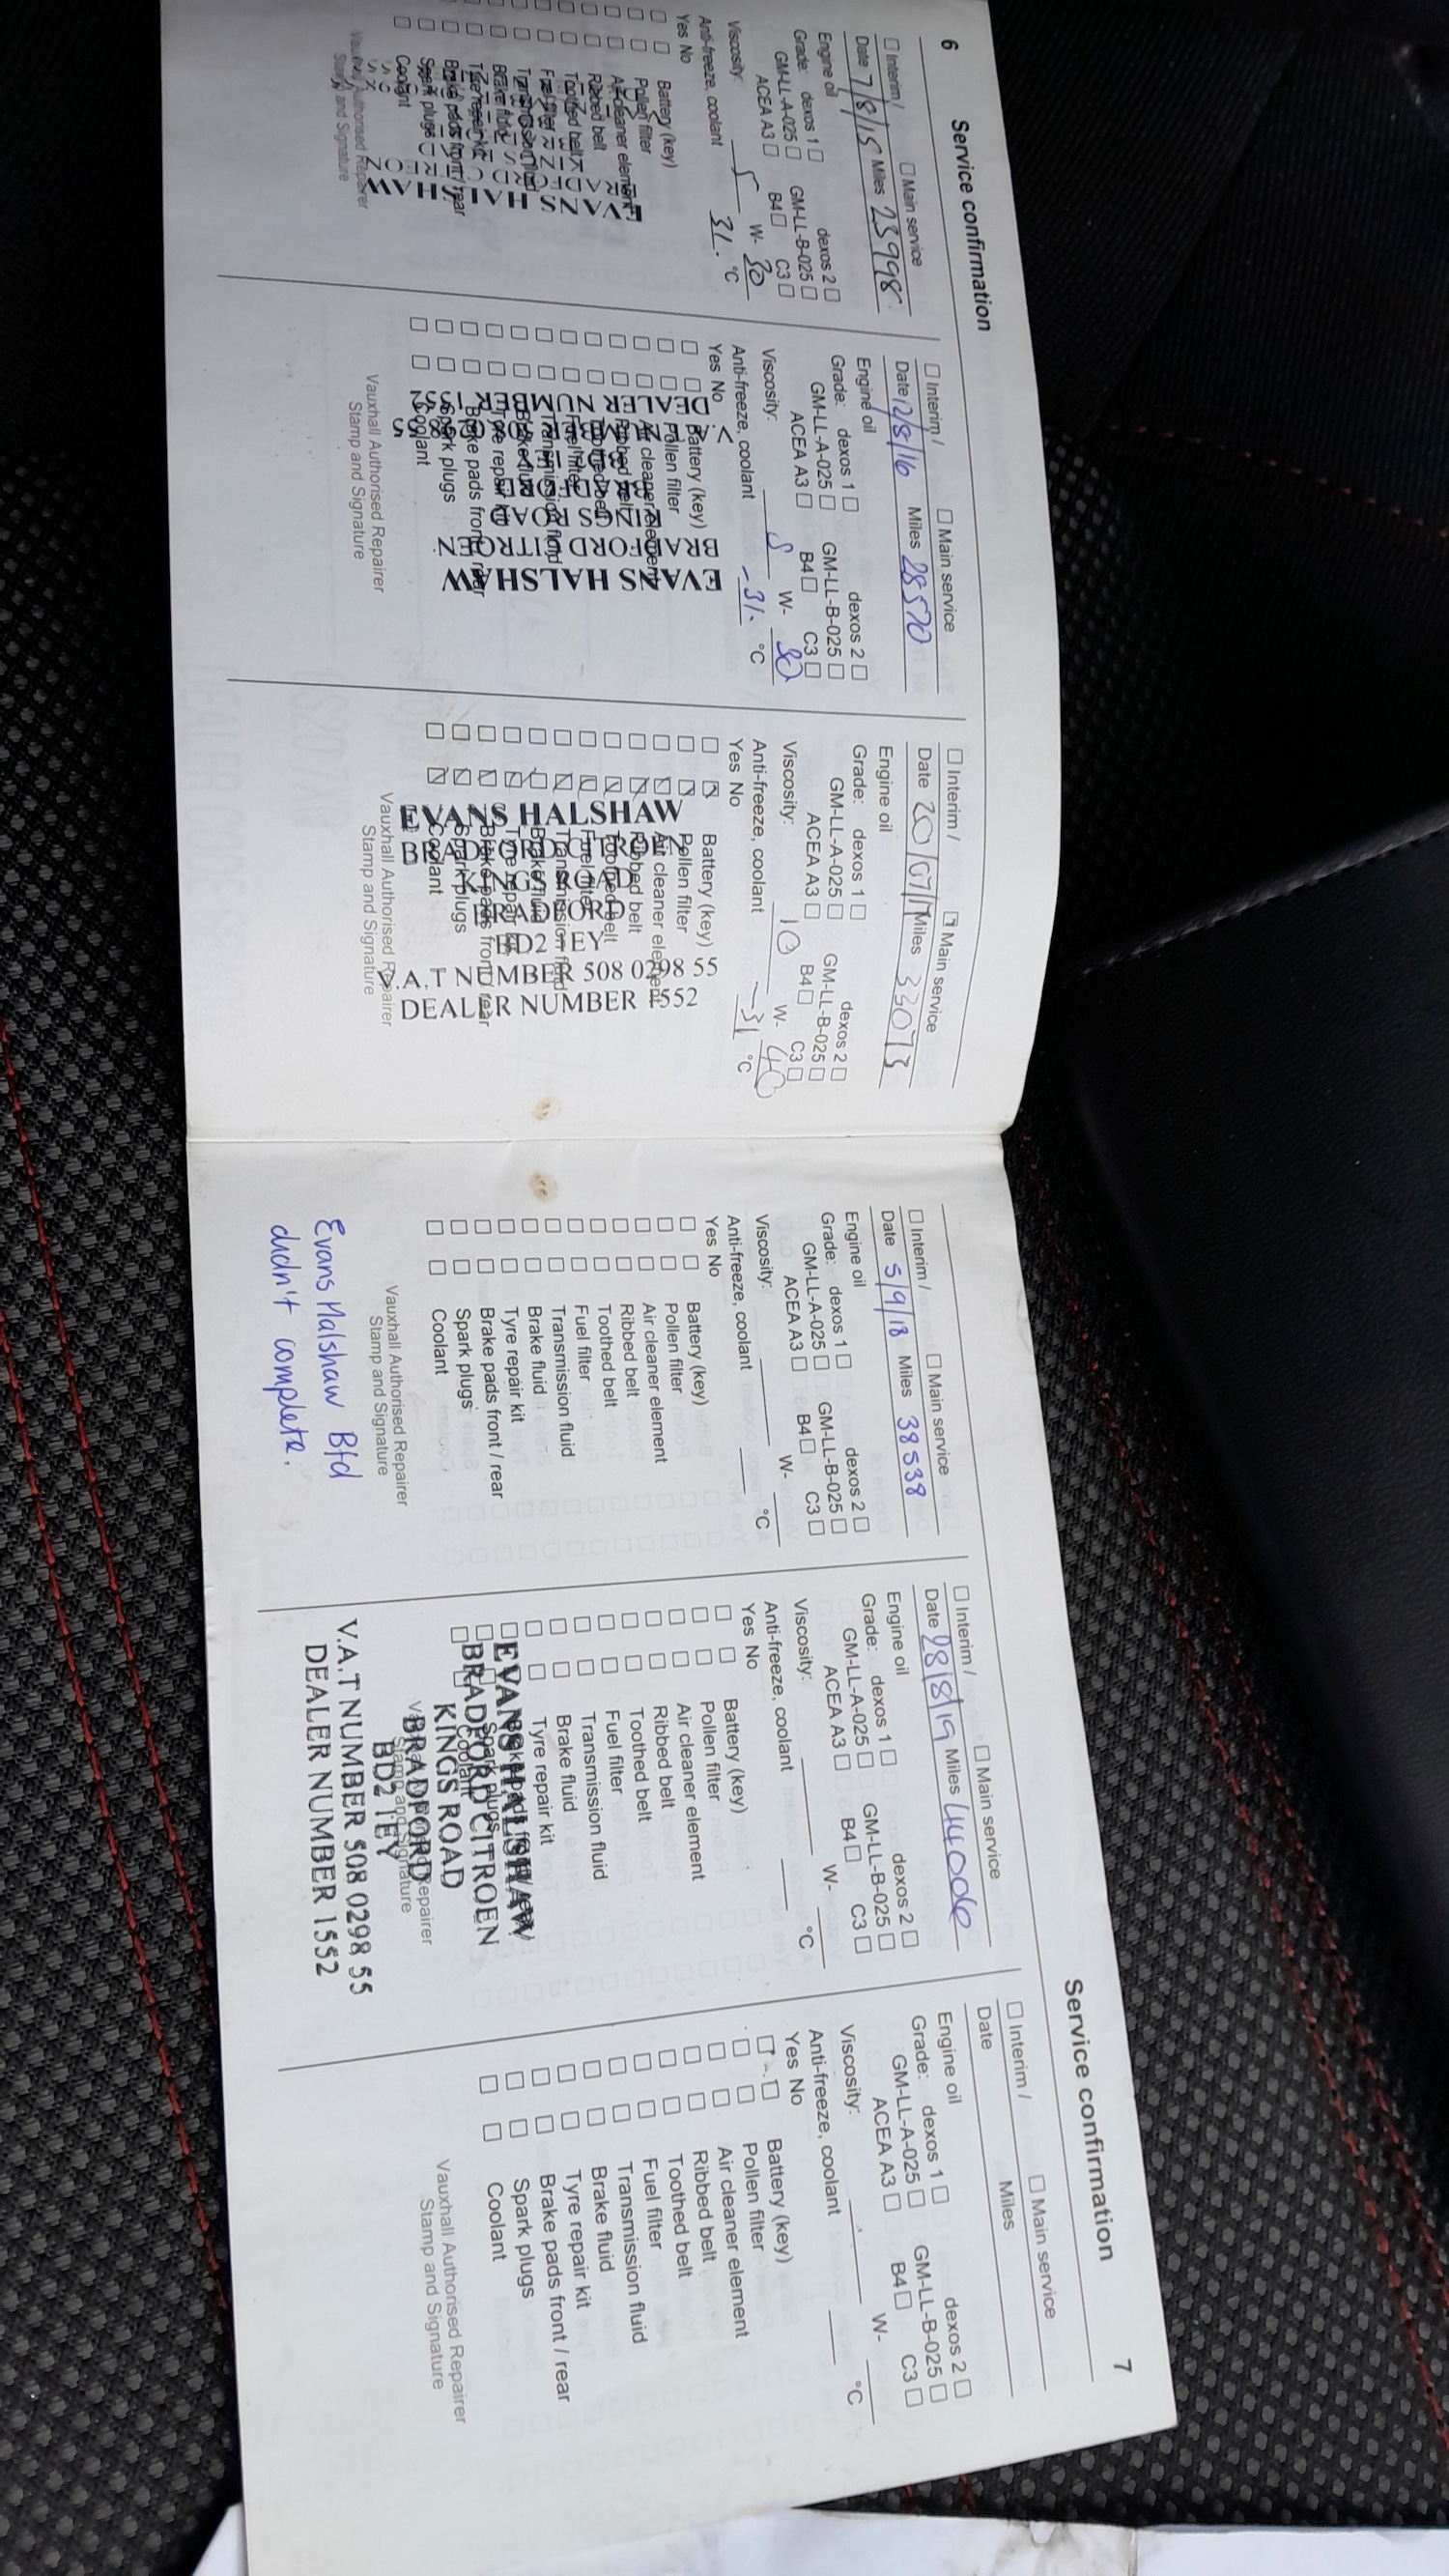 6 Service confirmation
☐ Interim / ☐ Main service
Date 7/8/15 Miles 23998
Engine oil
Grade: dexos 1 ☐ dexos 2 ☐
GM-LL-A-025 ☐ GM-LL-B-025 ☐
ACEA A3 ☐ B4 ☐ C3 ☐
Viscosity: 5 W- 30
Anti-freeze, coolant 31. °C
Yes No
☐ ☐ Battery (key)
☐ ☐ Pollen filter
☐ ☐ Air cleaner element
☐ ☐ Ribbed belt
☐ ☐ Toothed belt
☐ ☐ Fuel filter
☐ ☐ Transmission fluid
☐ ☐ Brake fluid
☐ ☐ Tyre repair kit
☐ ☐ Brake pads front / rear
☐ ☐ Spark plugs
☐ ☐ Coolant
EVANS HALSHAW
Vauxhall Authorised Repairer
Stamp and Signature
☐ Interim / ☐ Main service
Date 12/8/16 Miles 28570
Engine oil
Grade: dexos 1 ☐ dexos 2 ☐
GM-LL-A-025 ☐ GM-LL-B-025 ☐
ACEA A3 ☐ B4 ☐ C3 ☐
Viscosity: 5 W- 30
Anti-freeze, coolant -31. °C
Yes No
☐ ☐ Battery (key)
☐ ☐ Pollen filter
☐ ☐ Air cleaner element
☐ ☐ Ribbed belt
☐ ☐ Toothed belt
☐ ☐ Fuel filter
☐ ☐ Transmission fluid
☐ ☐ Brake fluid
☐ ☐ Tyre repair kit
☐ ☐ Brake pads front / rear
☐ ☐ Spark plugs
☐ ☐ Coolant
EVANS HALSHAW
BRADFORD CITROEN
KINGS ROAD
BRADFORD
V.A.T NUMBER 508 0298 55
DEALER NUMBER 1552
Vauxhall Authorised Repairer
Stamp and Signature
☐ Interim / ☑ Main service
Date 20/07/17 Miles 33073
Engine oil
Grade: dexos 1 ☐ dexos 2 ☐
GM-LL-A-025 ☐ GM-LL-B-025 ☐
ACEA A3 ☐ B4 ☐ C3 ☐
Viscosity: 10 W- 40
Anti-freeze, coolant -31 °C
Yes No
☐ ☑ Battery (key)
☐ ☑ Pollen filter
☐ ☑ Air cleaner element
☐ ☑ Ribbed belt
☐ ☑ Toothed belt
☐ ☑ Fuel filter
☐ ☑ Transmission fluid
☐ ☑ Brake fluid
☐ ☑ Tyre repair kit
☐ ☑ Brake pads front / rear
☐ ☑ Spark plugs
☐ ☑ Coolant
EVANS HALSHAW
BRADFORD CITROEN
KINGS ROAD
BRADFORD
BD2 1EY
V.A.T NUMBER 508 0298 55
DEALER NUMBER 1552
Vauxhall Authorised Repairer
Stamp and Signature
Service confirmation 7
☐ Interim / ☐ Main service
Date 5/9/18 Miles 38538
Engine oil
Grade: dexos 1 ☐ dexos 2 ☐
GM-LL-A-025 ☐ GM-LL-B-025 ☐
ACEA A3 ☐ B4 ☐ C3 ☐
Viscosity: W-
Anti-freeze, coolant °C
Yes No
☐ ☐ Battery (key)
☐ ☐ Pollen filter
☐ ☐ Air cleaner element
☐ ☐ Ribbed belt
☐ ☐ Toothed belt
☐ ☐ Fuel filter
☐ ☐ Transmission fluid
☐ ☐ Brake fluid
☐ ☐ Tyre repair kit
☐ ☐ Brake pads front / rear
☐ ☐ Spark plugs
☐ ☐ Coolant
Vauxhall Authorised Repairer
Stamp and Signature
Evans Halshaw Bfd
didn't complete.
☐ Interim / ☐ Main service
Date 28/8/19 Miles 44006
Engine oil
Grade: dexos 1 ☐ dexos 2 ☐
GM-LL-A-025 ☐ GM-LL-B-025 ☐
ACEA A3 ☐ B4 ☐ C3 ☐
Viscosity: W-
Anti-freeze, coolant °C
Yes No
☐ ☐ Battery (key)
☐ ☐ Pollen filter
☐ ☐ Air cleaner element
☐ ☐ Ribbed belt
☐ ☐ Toothed belt
☐ ☐ Fuel filter
☐ ☐ Transmission fluid
☐ ☐ Brake fluid
☐ ☐ Tyre repair kit
☐ ☐ Brake pads front / rear
☐ ☐ Spark plugs
☐ ☐ Coolant
Vauxhall Authorised Repairer
Stamp and Signature
EVANS HALSHAW
BRADFORD CITROEN
KINGS ROAD
BRADFORD
BD2 1EY
V.A.T NUMBER 508 0298 55
DEALER NUMBER 1552
☐ Interim / ☐ Main service
Date Miles
Engine oil
Grade: dexos 1 ☐ dexos 2 ☐
GM-LL-A-025 ☐ GM-LL-B-025 ☐
ACEA A3 ☐ B4 ☐ C3 ☐
Viscosity: W-
Anti-freeze, coolant °C
Yes No
☐ ☐ Battery (key)
☐ ☐ Pollen filter
☐ ☐ Air cleaner element
☐ ☐ Ribbed belt
☐ ☐ Toothed belt
☐ ☐ Fuel filter
☐ ☐ Transmission fluid
☐ ☐ Brake fluid
☐ ☐ Tyre repair kit
☐ ☐ Brake pads front / rear
☐ ☐ Spark plugs
☐ ☐ Coolant
Vauxhall Authorised Repairer
Stamp and Signature